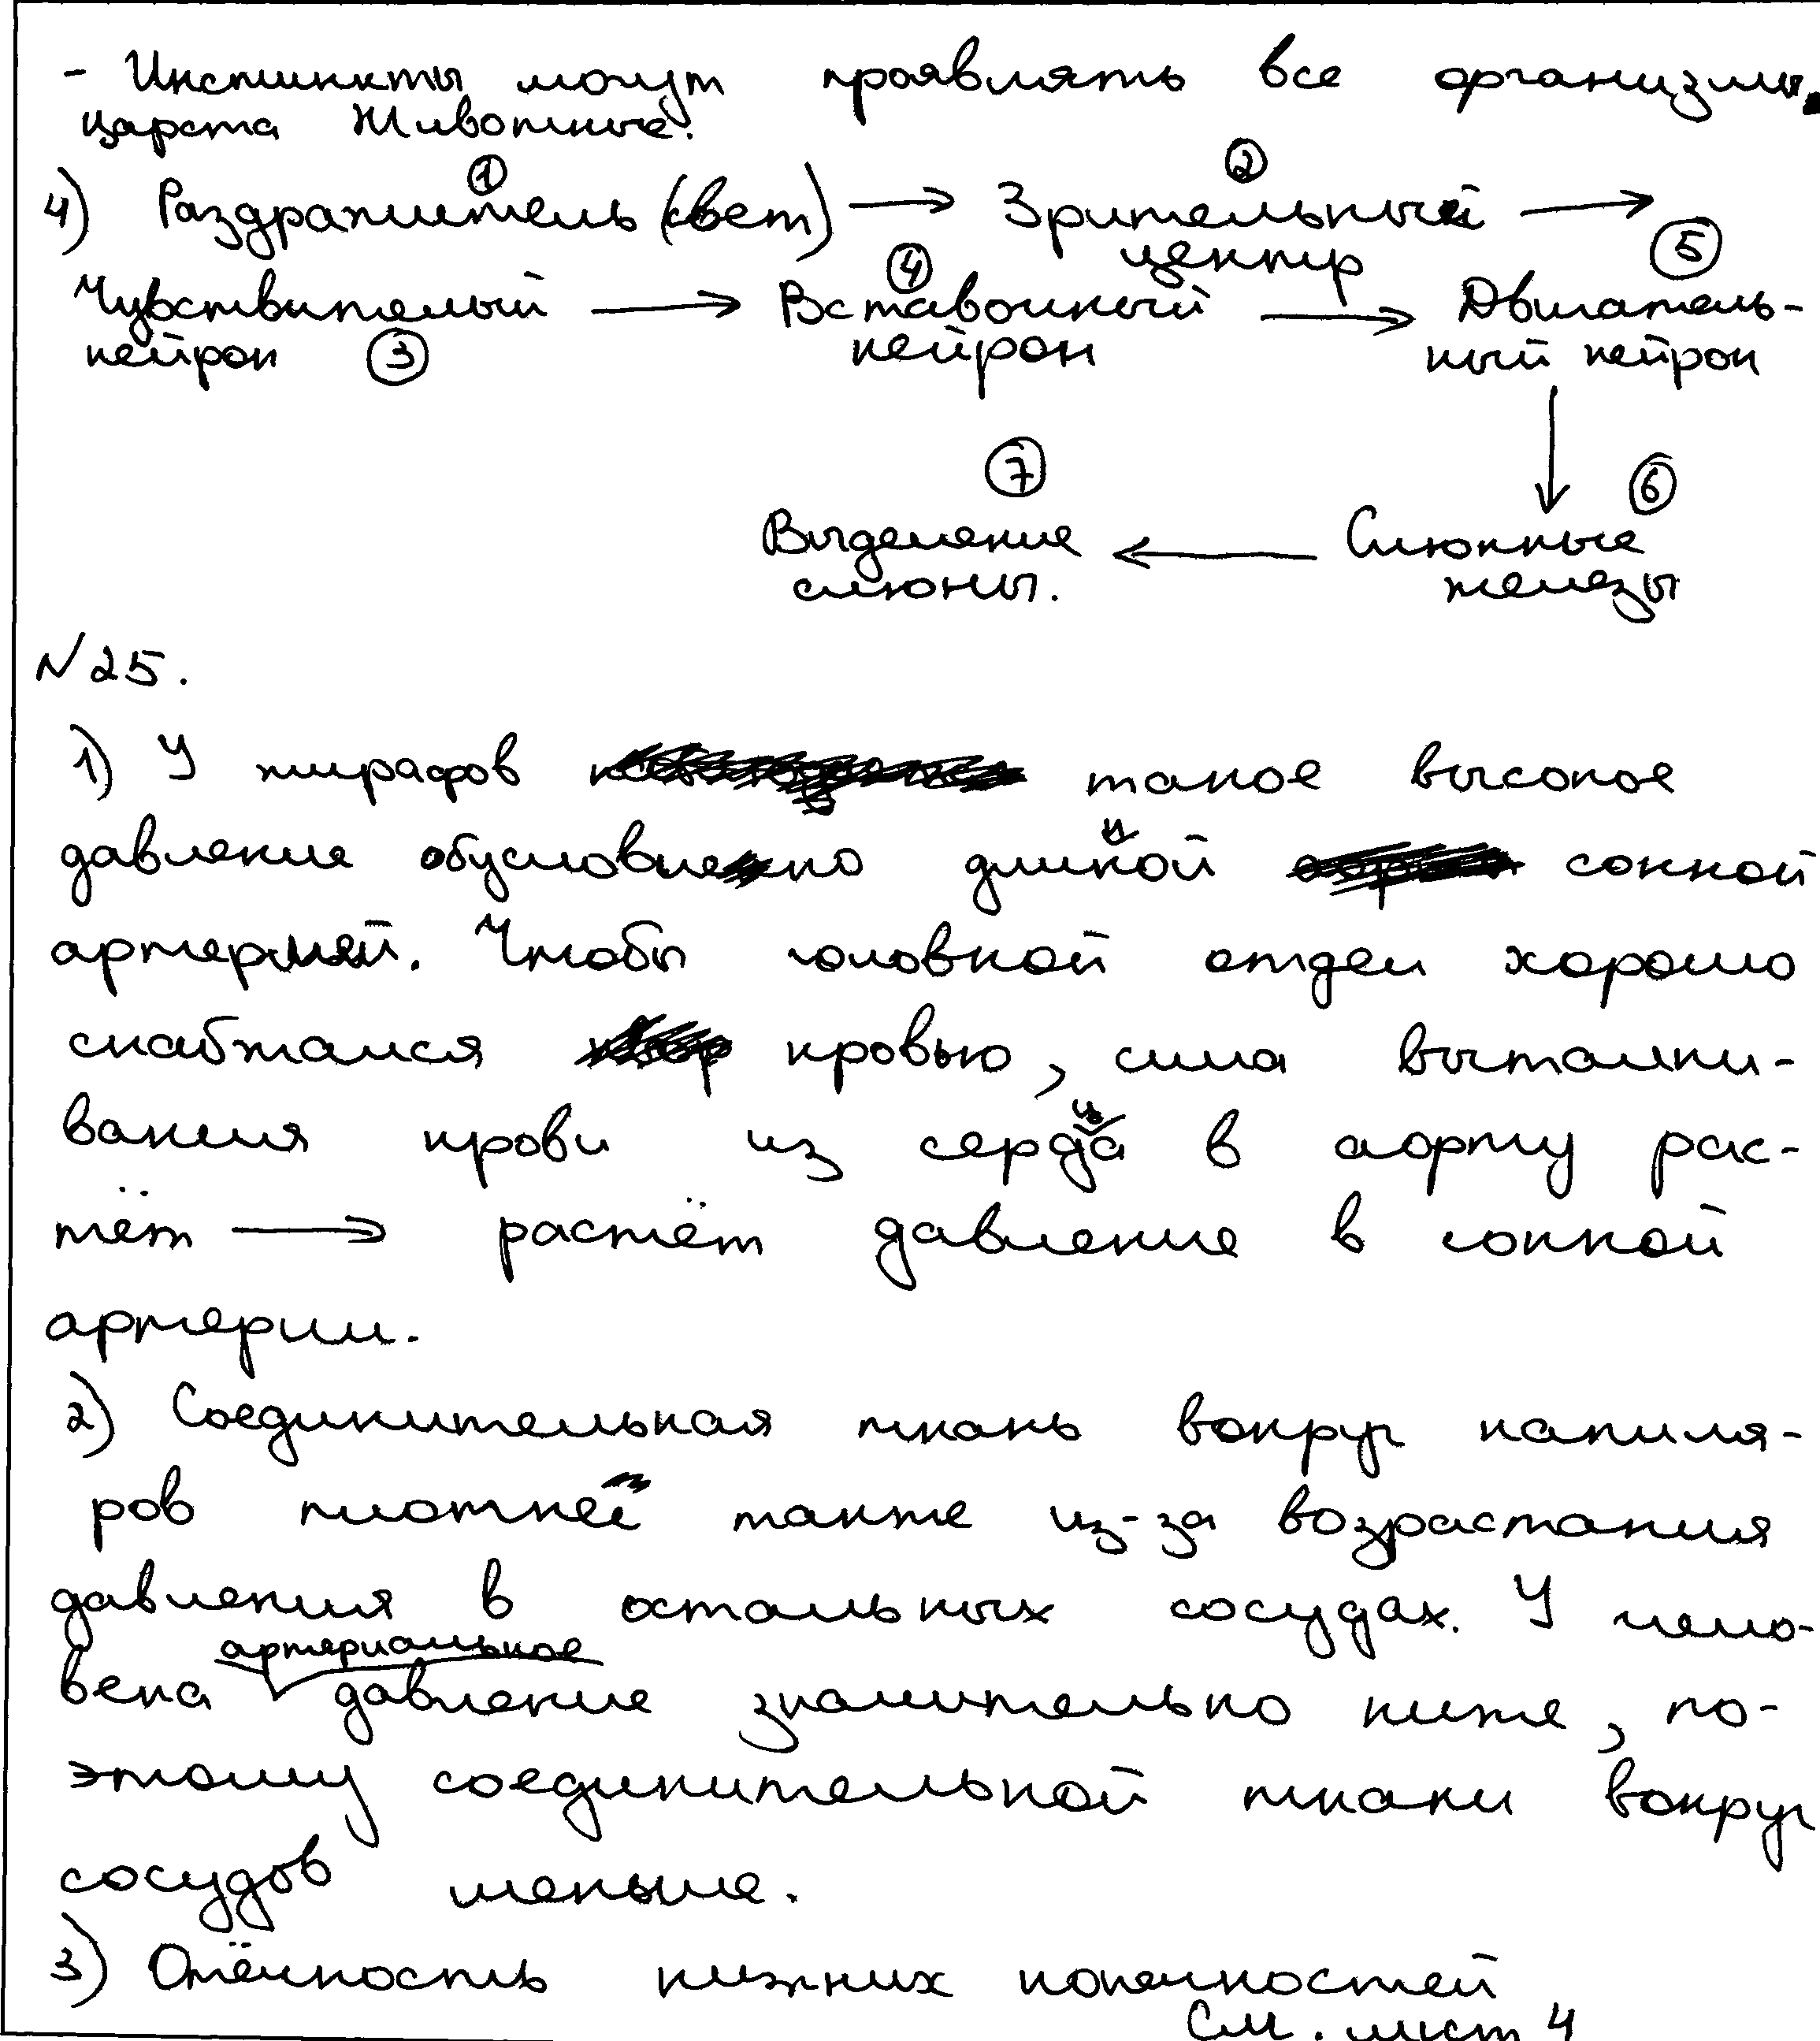 - Инстинкты могут проявлять все организмы
царста Животные.
4) Раздражитель (свет) → Зрительный →
① ②
центр
Чувствителый → Вставочный → Двигатель-
④ ⑤
нейрон ③ нейрон ный нейрон
↓
⑦ ⑥
Выделение ← Слюнные
слюны. железы
№25.
1) У жирафов такое высокое
давление обусловлено длинной сонной
артерией. Чтобы головной отдел хорошо
снабжался кровью, сила выталки-
вания крови из сердца в аорту рас-
тёт → растёт давление в сонной
артерии.
2) Соединительная ткань вокруг капиля-
ров плотнее также из-за возрастания
давления в остальных сосудах. У чело-
века артериальное давление значительно ниже, по-
этому соединительной ткани вокруг
сосудов меньше.
3) Отёчность нижних конечностей
См. лист 4